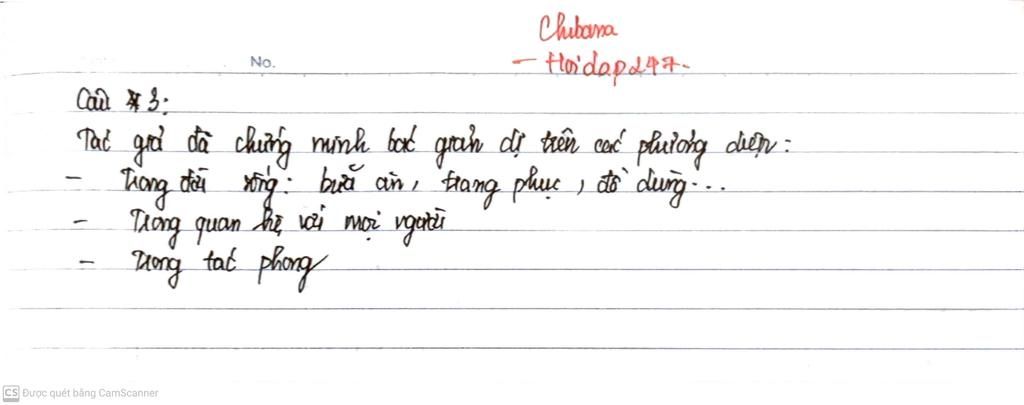 Chibana
- Hoidap247-
No.
Câu 3:
Tác giả đã chứng minh bác giản dị trên các phương diện:
- Trong đời sống: bữa ăn, trang phục, đồ dùng...
- Trong quan hệ với mọi người
- Trong tác phong
CS Được quét bằng CamScanner